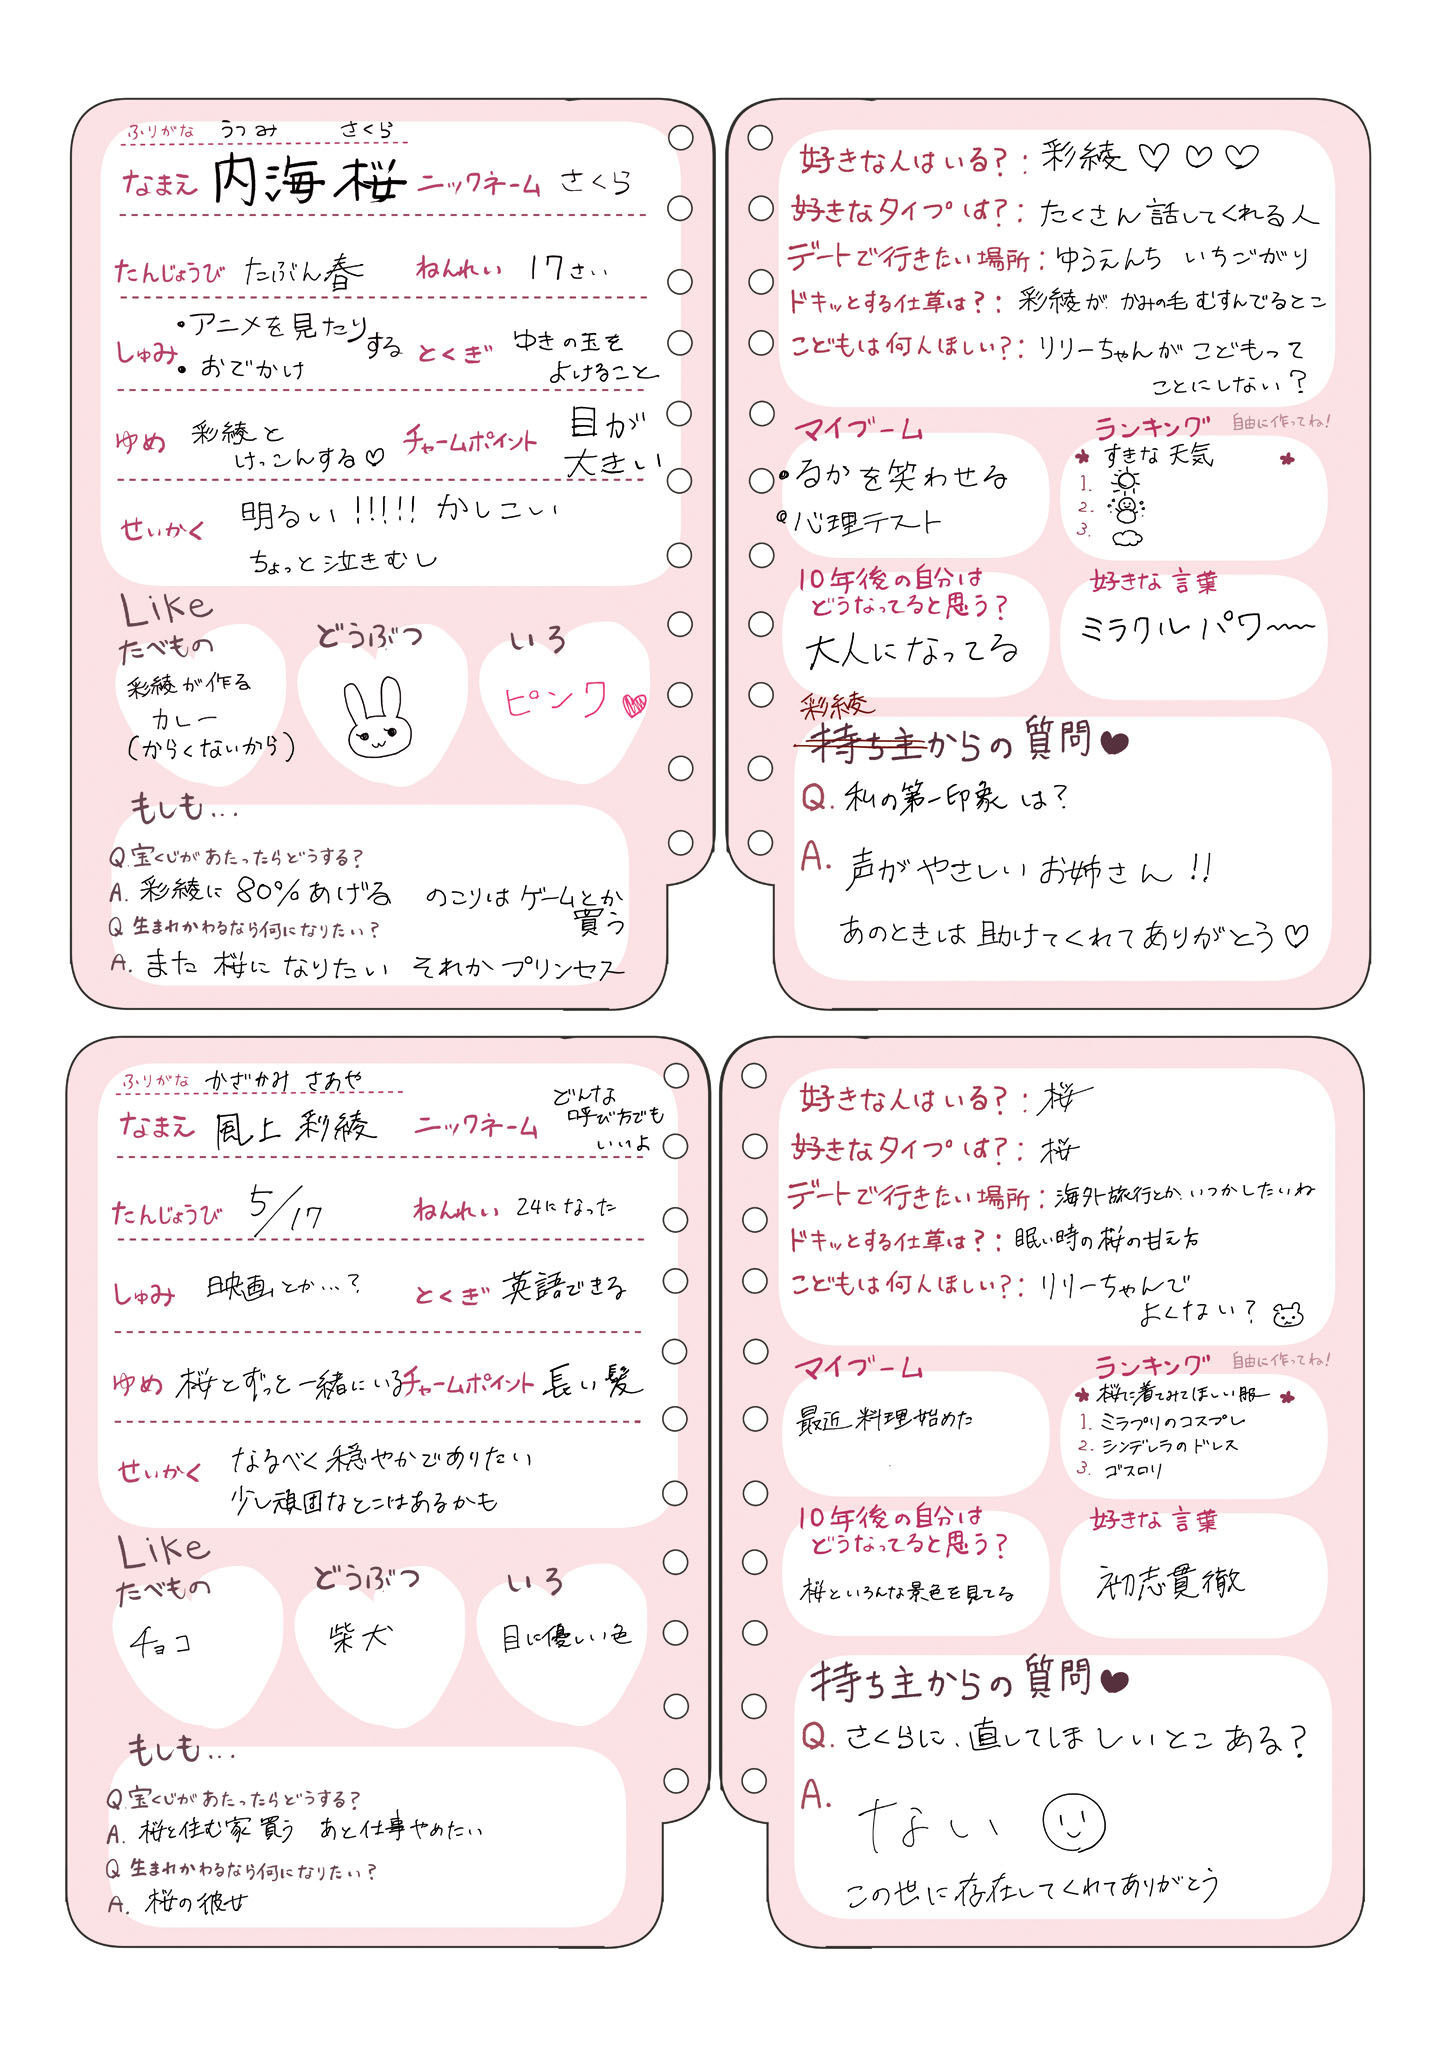 ふりがな うつみ さくら
なまえ 内海 桜 ニックネーム さくら
たんじょうび たぶん春 ねんれい 17さい
しゅみ •アニメを見たりする
•おでかけ
とくぎ ゆきの玉を
よけること
ゆめ 彩綾と
けっこんする♡
チャームポイント 目が
大きい
せいかく 明るい!!!!! かしこい
ちょっと泣きむし
Like
たべもの どうぶつ いろ
彩綾が作る
カレー
(からくないから)
ピンク♥
もしも...
Q.宝くじがあたったらどうする?
A. 彩綾に 80%あげる のこりは ゲームとか
買う
Q 生まれかわるなら何になりたい?
A. また 桜に なりたい それか プリンセス
好きな人はいる?: 彩綾♡♡♡
好きなタイプは?: たくさん話してくれる人
デートで行きたい場所: ゆうえんち いちごがり
ドキッとする仕草は?: 彩綾が かみの毛 むすんでるとこ
こどもは何人ほしい?: リリーちゃんが こどもって
ことにしない?
マイブーム
•るかを笑わせる
•心理テスト
ランキング 自由に作ってね!
★ すきな 天気 ★
1.
2.
3.
10年後の自分は
どうなってると思う?
大人になってる
好きな 言葉
ミラクルパワ〜〜
彩綾
持ち主からの質問♥
Q. 私の第一印象 は?
A. 声がやさしい お姉さん!!
あのときは 助けてくれてありがとう♡
ふりがな かざかみ さあや
なまえ 風上 彩綾 ニックネーム どんな
呼び方でも
いいよ
たんじょうび 5/17 ねんれい 24になった
しゅみ 映画とか...? とくぎ 英語できる
ゆめ 桜とずっと一緒にいる チャームポイント 長い髪
せいかく なるべく穏やかでありたい
少し頑固なとこはあるかも
Like
たべもの どうぶつ いろ
チョコ 柴犬 目に優しい色
もしも...
Q.宝くじがあたったらどうする?
A. 桜と住む家買う あと仕事やめたい
Q 生まれかわるなら何になりたい?
A. 桜の彼女
好きな人はいる?: 桜
好きなタイプは?: 桜
デートで行きたい場所: 海外旅行とか、いつかしたいね
ドキッとする仕草は?: 眠い時の桜の甘え方
こどもは何人ほしい?: リリーちゃんで
よくない?
マイブーム
最近料理始めた
ランキング 自由に作ってね!
★ 桜に着てみてほしい服 ★
1. ミラプリのコスプレ
2. シンデレラのドレス
3. ゴスロリ
10年後の自分は
どうなってると思う?
桜といろんな景色を見てる
好きな 言葉
初志貫徹
持ち主からの質問♥
Q. さくらに、直してほしいとこ ある?
A. ない
この世に存在してくれてありがとう